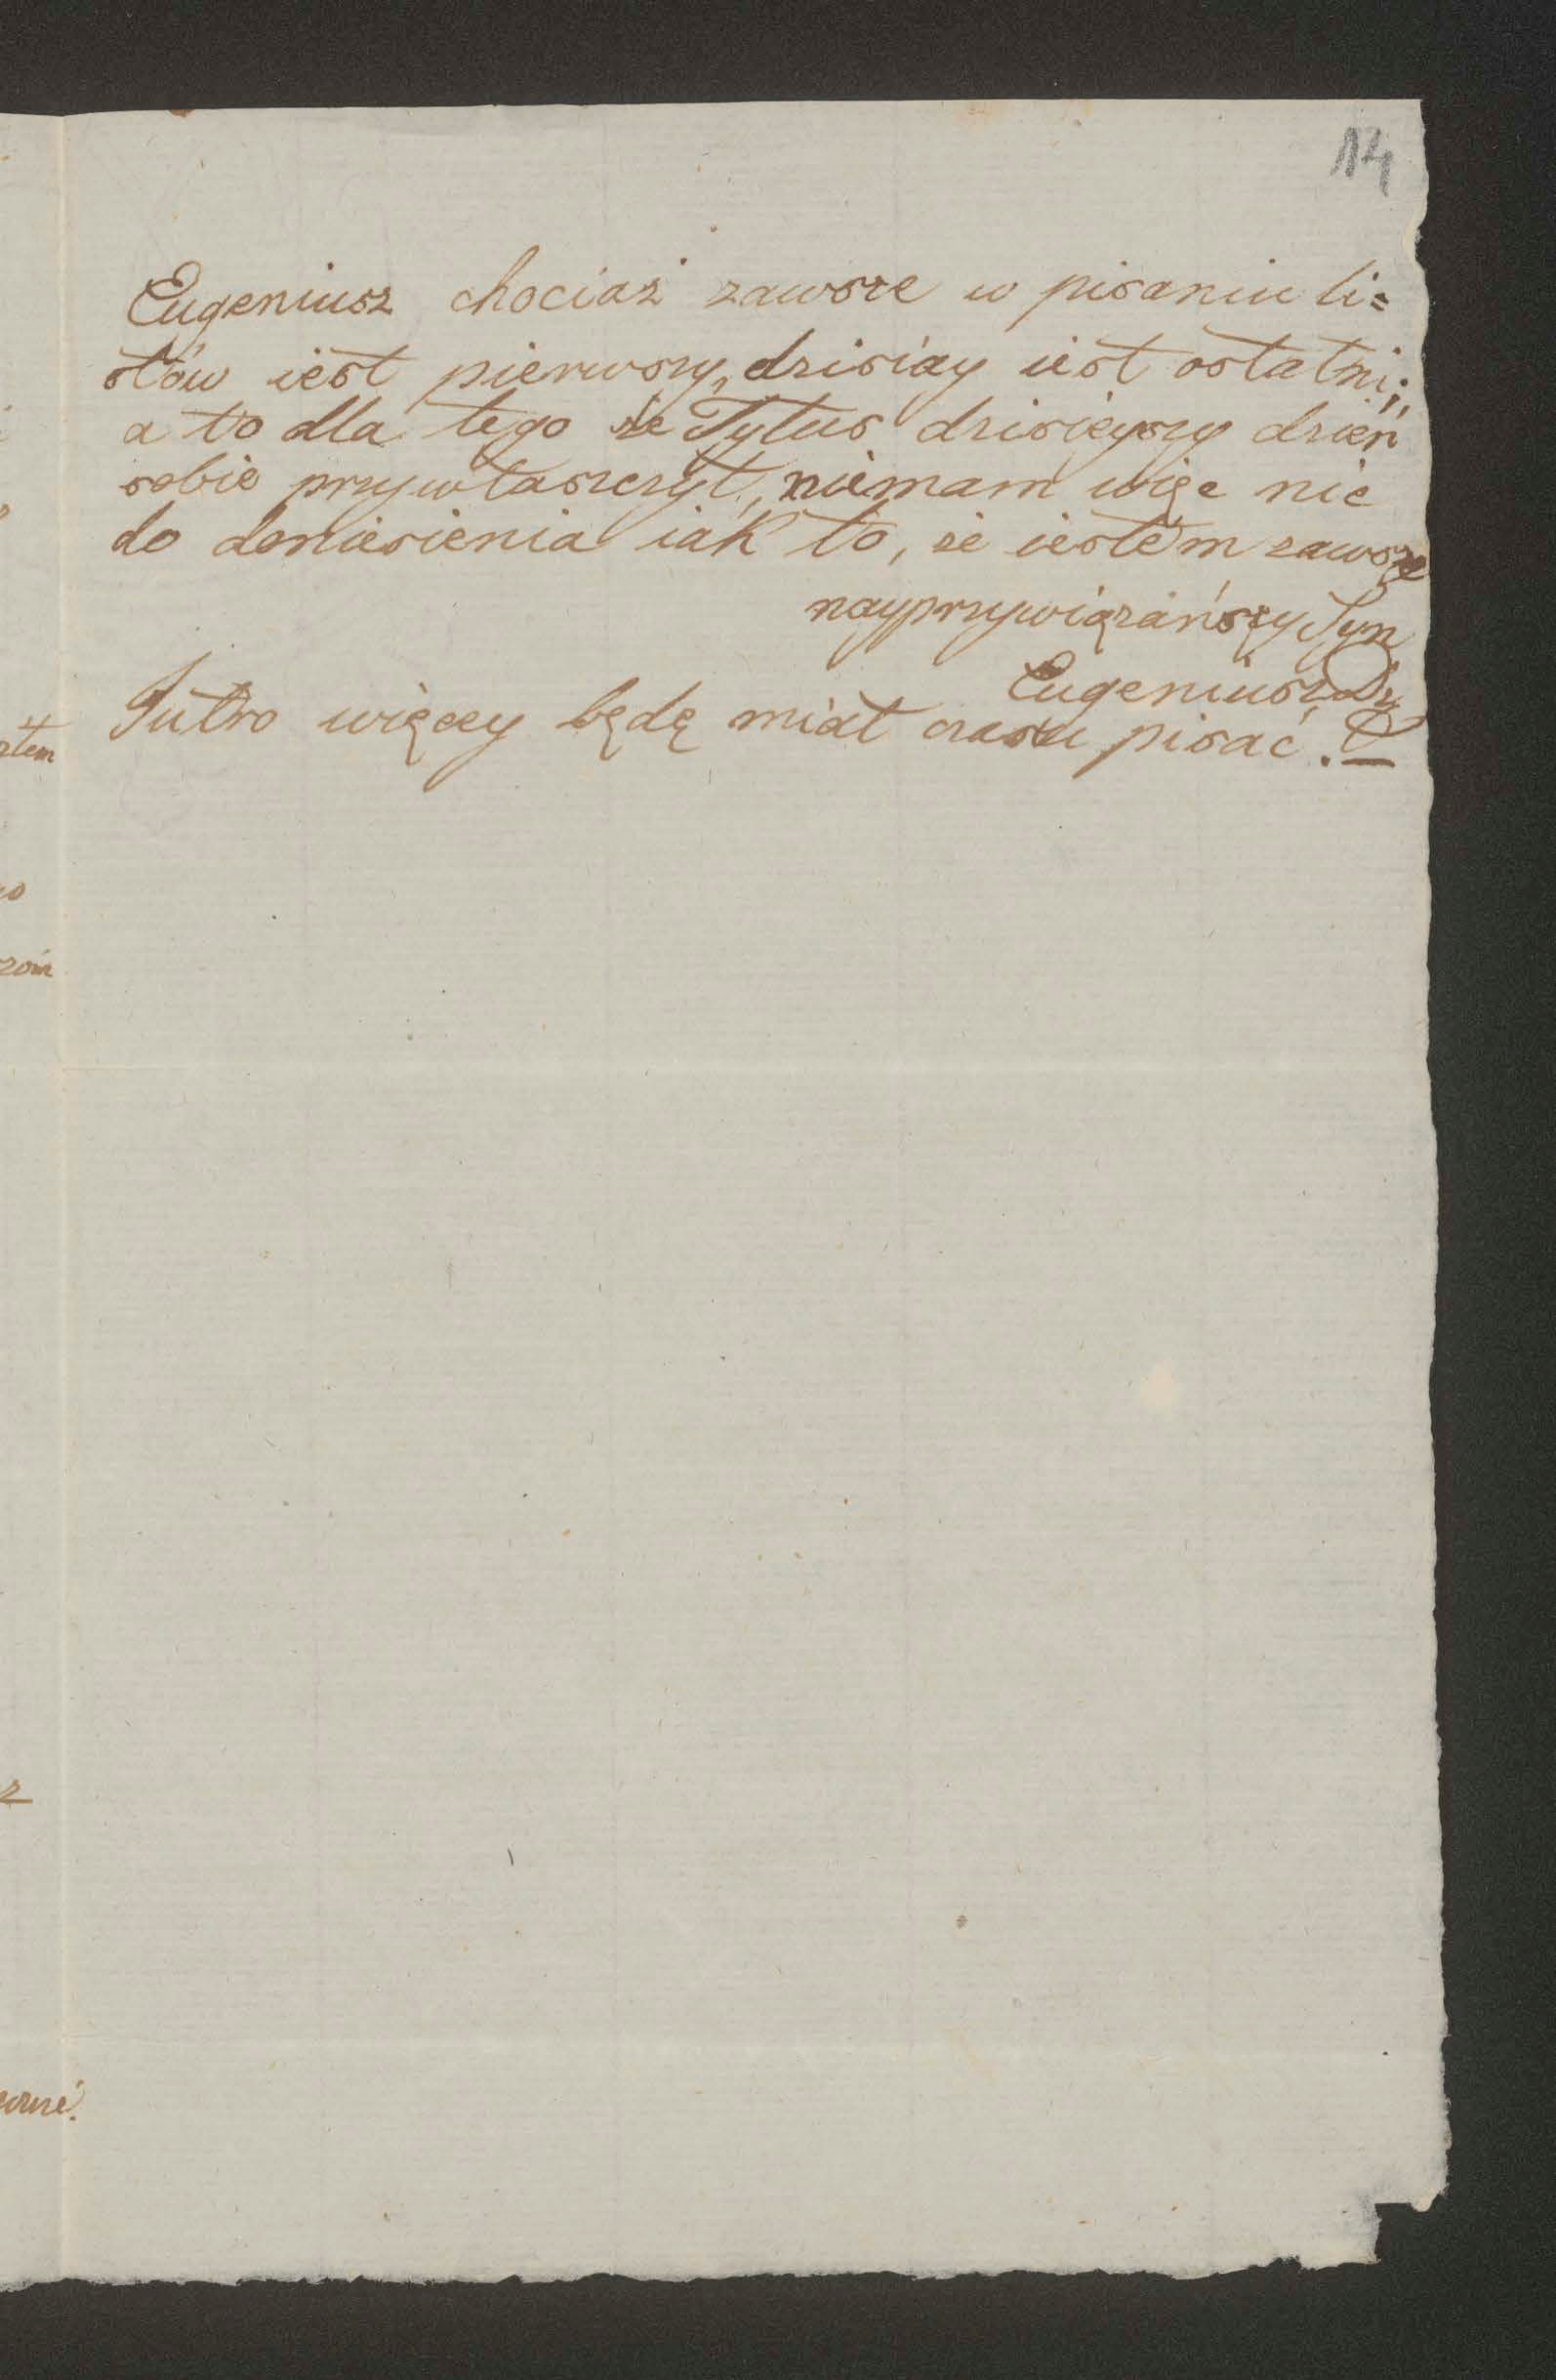 14
Eugeniusz chociaż zawsze w pisaniu li=
stów iest pierwszy, dzisiay iest ostatni;
a to dla tego że Tytus dzisieyszy dzień
sobie przywłaszczył, niemam więc nic
do doniesienia iak to, że iestem zawsze
nayprzywiązańszy Syn
Eugeniusz
Jutro więcey będę miał czasu pisać.